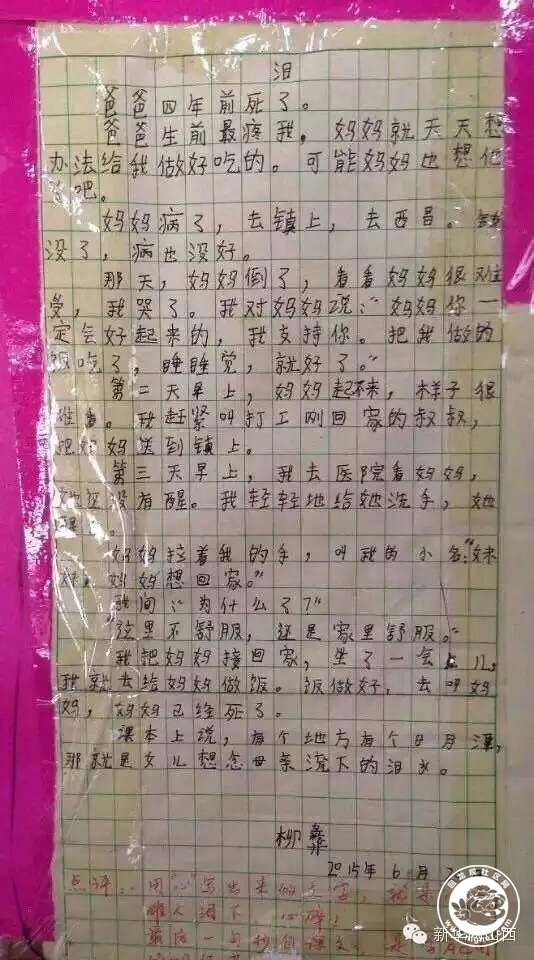 泪
爸爸四年前死了。
爸爸生前最疼我，妈妈就天天想
办法给我做好吃的。可能妈妈也想他
了吧。
妈妈病了，去镇上，去西昌。钱
没了，病也没好。
那天，妈妈倒了，看看妈妈很难
受，我哭了。我对妈妈说："妈妈你一
定会好起来的，我支持你。把我做的
饭吃了，睡睡觉，就好了。"
第二天早上，妈妈起不来，样子很
难看。我赶紧叫打工刚回家的叔叔，
把妈妈送到镇上。
第三天早上，我去医院看妈妈，
她还没有醒。我轻轻地给她洗手，她
醒了。
妈妈拉着我的手，叫我的小名："妹
妹，妈妈想回家。"
我问："为什么了？"
"这里不舒服，还是家里舒服。"
我把妈妈接回家，坐了一会儿，
我就去给妈妈做饭。饭做好，去叫妈
妈，妈妈已经死了。
课本上说，有个地方有个日月潭，
那就是女儿想念母亲流下的泪水。
柳彝
2015年6月
点评：用"心"写出来的文字，
催人泪下
最后一句
回龙观社区网